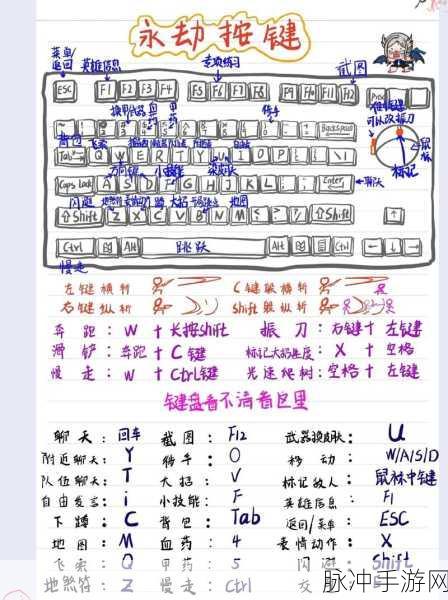 永劫按键
菜单/返回 英雄信息 专项练习 截图
ESC F1 F2 F3 F4 F5 F6 F7 F8 F9 F10 F11 F12
可以改振刀
标记
背包 飞索
Backspace
Tab Q W E R T Y U I O P
方向键 小技能
Caps Lock A S D F G H J K L Enter 聊天
闪避 地煞符 下蹲 大招 地图
Shift Z X C V B N M Shift
Ctrl Alt 跳跃 Alt Ctrl
慢走
左键横斩 C键蹲横斩
右键纵斩 shift躲纵斩
奔跑：W + 长按shift 振刀：右键 + 左键
滑铲：奔跑 + C键 标记大招进度：X + 空格
慢走：W + Ctrl键 光速爬树：空格 + 左键
键盘看不清看这里
聊天：回车 截图：F12 武器换皮肤：U
附近聊天：Y 躺平：O 移动：W/A/S/D
队伍聊天：T 大招：V 标记敌人：鼠标中键
自由发言：i 小技能：F 英雄信息：F1
下蹲：C 背包：Tab 返回/菜单：ESC
地图：M 血药：4 表情动作：X
飞索：Q 甲药：5 闪避：Shift
地煞符：Z 慢走：Ctrl
脉冲手游网